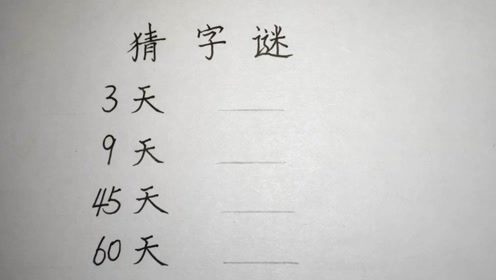 猜字谜
3天
9天
45天
60天